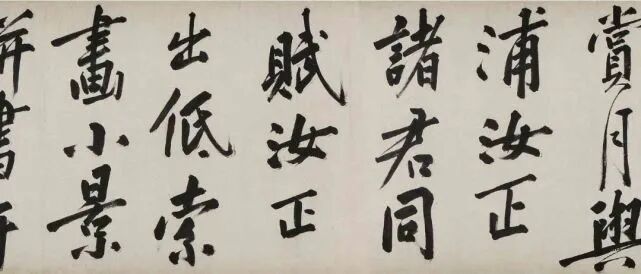 賞月與
浦汝正
諸君同
賦汝正
出低索
畫小景
并書於